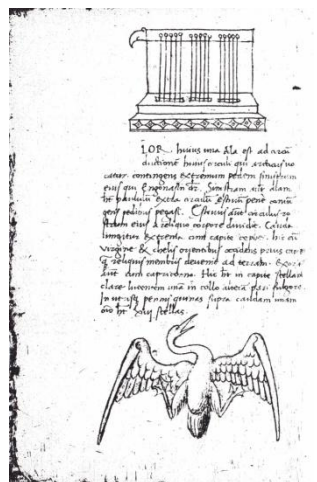 LOR. huius una ala est ad circu
ductione huius circuli qui articus uo
catur. contingens extremum pedem sinistrum
eius qui engonasin dr. Sinistram aut alam
ht paululum extra circulu estiuu pene contin
gens pedibus pegasi. Estiuus aut circulus ro
strum eius a reliquo corpore diuidit. Cauda
iungitur extrema cum capite cephei. hic cu
uirgine & chelis orientibus occidens prius capit
q reliquis membris deuenit ad terram. Exori
aut cum capricorno. Hic ht in capite stellam
clare lucentem unā in collo alterā pari fulgore.
In utrisq pennis quinas supra caudam unam
oio ht xiii stellas.